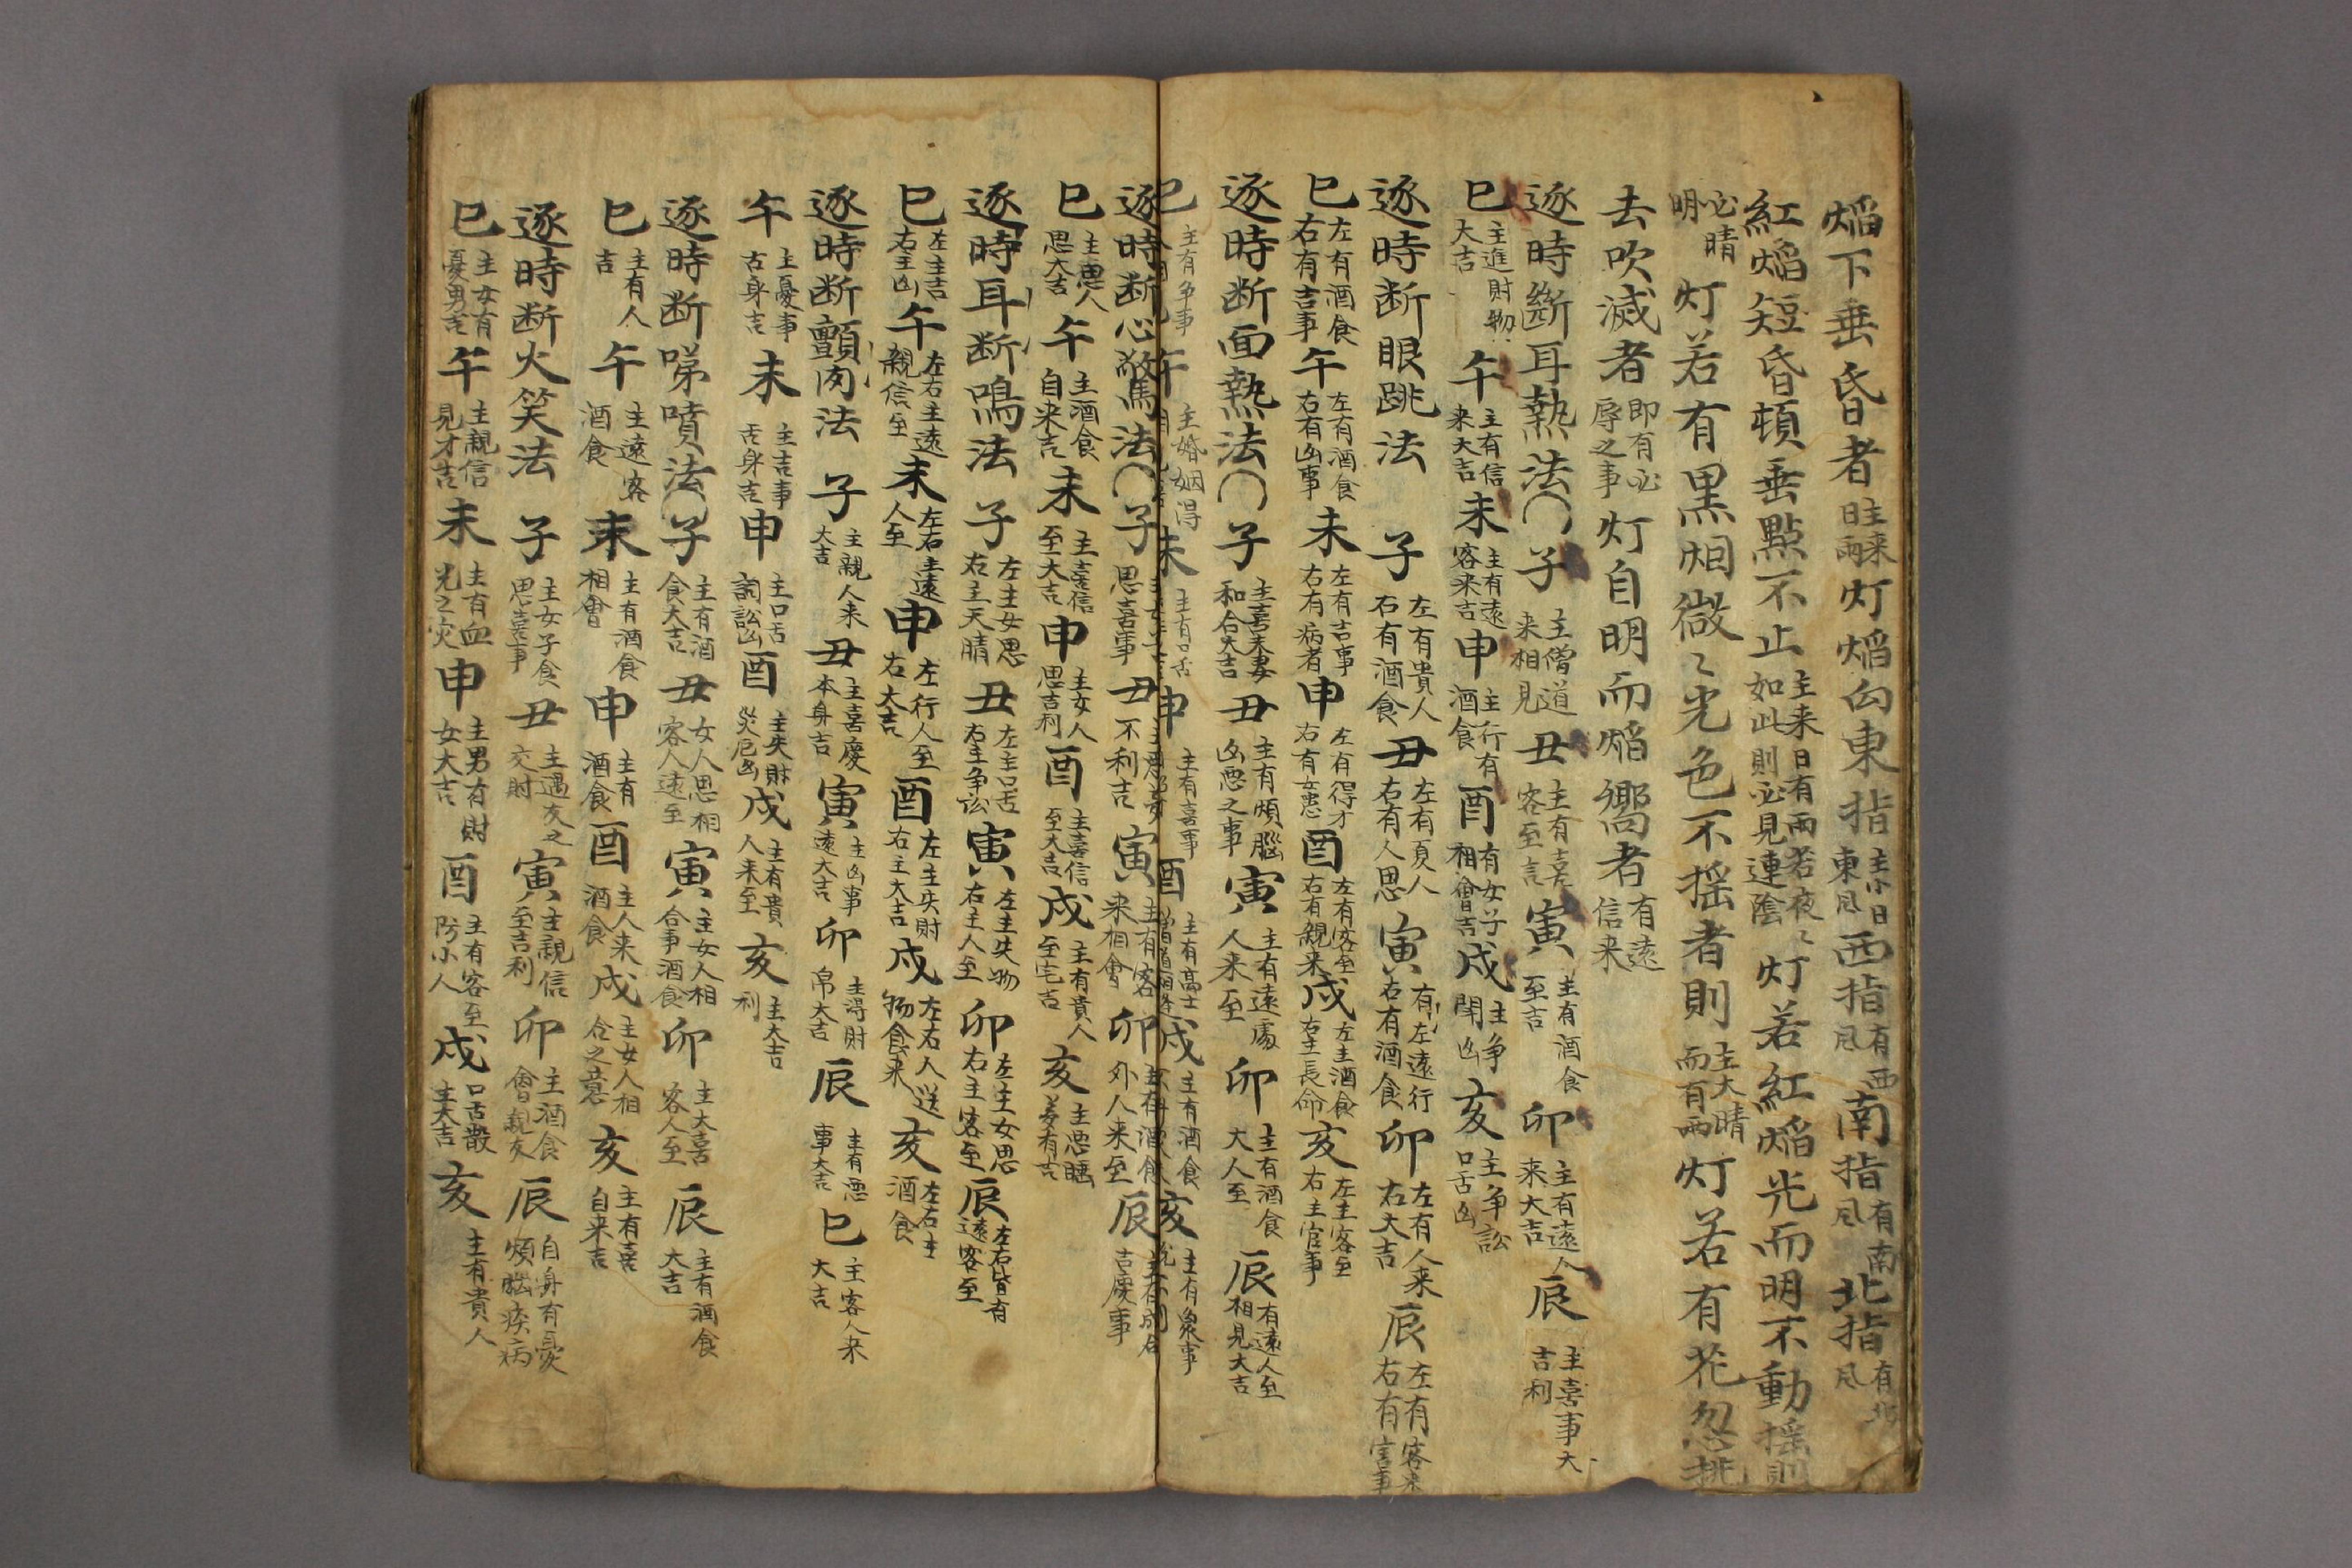 焔下垂昏者 主来日雨 灯焔向東指 主小日東凨 西指 有西凨 南指 有南凨 北指 有北凨
紅焔短昏頓垂點不止 主来日有雨若夜々如此則必見連陰 灯若紅焔光而明不動揺則
必晴明 灯若有黒烟微々光色不揺者則 主大晴而有雨 灯若有花忽挑
去吹滅者 即有必辱之事 灯自明而焔嚮者 有遠信来
逐時斷耳熱法 子 主僧道来相見 丑 主有喜客至言 寅 主有酒食至吉 卯 主有遠人来大吉 辰 主喜事大吉利
巳 主進財物大吉 午 主有信来大吉 未 主有遠客来吉 申 主行有酒食 酉 有女子相會吉 戌 主争鬧凶 亥 主争訟口舌凶
逐時断眼跳法 子 左有貴人右有酒食 丑 左有夏人右有人思 寅 有左遠行右有酒食 卯 左有人来右大吉 辰 左有客来右有官事
巳 左有酒食右有吉事 午 左有酒食右有凶事 未 左有吉事右有病者 申 左有得才右有女思 酉 左有客至右有親来 戌 左主酒食右主長命 亥 左主客至右主官事
逐時断面熱法 子 主喜夫妻和合大吉 丑 主有煩腦凶悪之事 寅 主有遠處人来至 卯 主有酒食大人至 辰 有遠人至相見大吉
巳 主有争事 午 主婚姻得 未 主有口舌 申 主有喜事 酉 主有高士 戌 主有酒食 亥 主有衆事
逐時断心驚法 子 思喜事 丑 不利吉 寅 主有客来相會 卯 主有酒食外人来至 辰 主有成合吉慶事
巳 主思人思大吉 午 主酒食自来吉 未 主喜信至大吉 申 主女人思吉利 酉 主喜信至大吉 戌 主有貴人至宅吉 亥 主悪瞎夢有吉
逐時耳断鳴法 子 左主女思右主天晴 丑 左主口舌右主争訟 寅 左主失物右主人至 卯 左主女思右主客至 辰 左右皆有遠客至
巳 左主吉右主凶 午 左右主遠親信至 未 左右主遠人至 申 左行人至右大吉 酉 左主失財右主大吉 戌 左右人送物食来 亥 左右主酒食
逐時断顫肉法 子 主親人来大吉 丑 主喜慶本身吉 寅 主凶事遠大吉 卯 主得財帛大吉 辰 主有悪事大吉 巳 主客人来大吉
午 主憂事古身吉 未 主吉事古身吉 申 主口舌詞訟凶 酉 主失財災厄凶 戌 主有貴人来至 亥 主大吉利
逐時断啼噴法 子 主有酒食大吉 丑 女人思相客人遠至 寅 主女人相合事酒食 卯 主大喜客人至 辰 主有酒食大吉
巳 主有人吉 午 主遠客酒食 未 主有酒食相會 申 主有酒食 酉 主人来酒食 戌 主女人相合之意 亥 主有喜自来吉
逐時断火笑法 子 主女子食思喜事 丑 主遇友之交財 寅 主親信至吉利 卯 主酒食會親友 辰 自身有憂煩惱疾病
巳 主女有憂男吉 午 主親信見才吉 未 主有血光之灾 申 主男有財女大吉 酉 主有客至防小人 戌 口舌散主大吉 亥 主有貴人